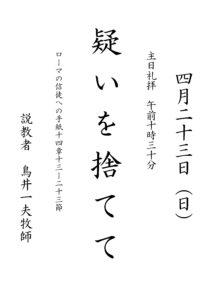 四月二十三日（日）
主日礼拝　午前十時三十分
疑いを捨てて
ローマの信徒への手紙十四章十三－二十三節
説教者　鳥井一夫牧師